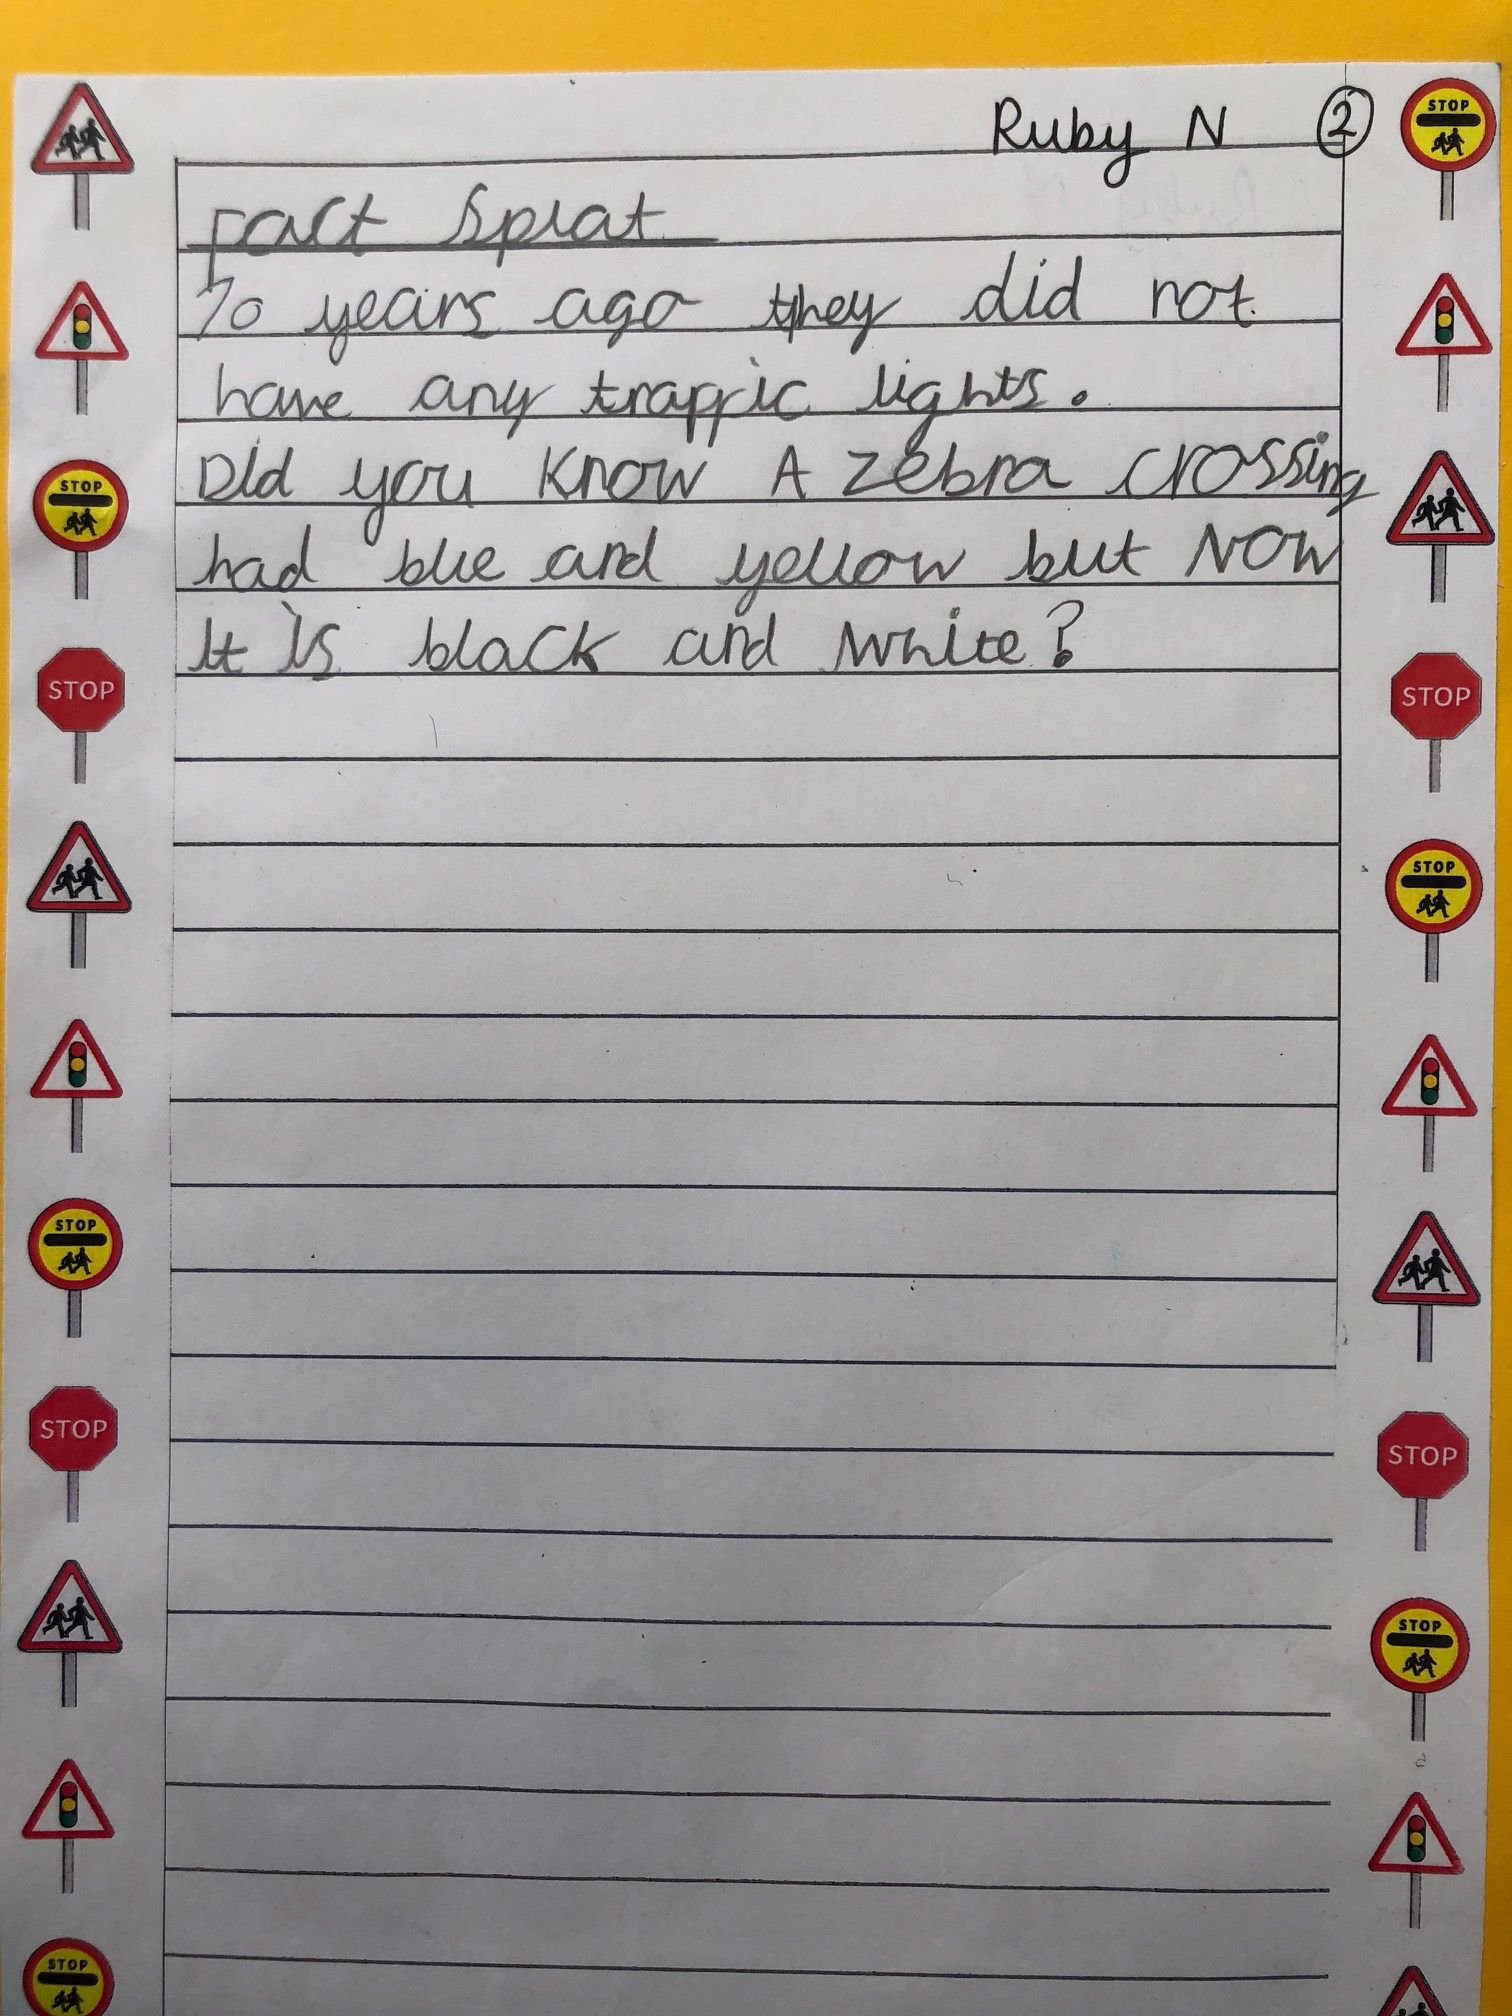 Ruby N 2
fact Splat
70 years ago they did not
have any traffic lights.
Did you know A zebra crossing
had blue and yellow but NOW
it is black and white?
STOP
STOP
STOP
STOP
STOP
STOP
STOP
STOP
STOP
STOP